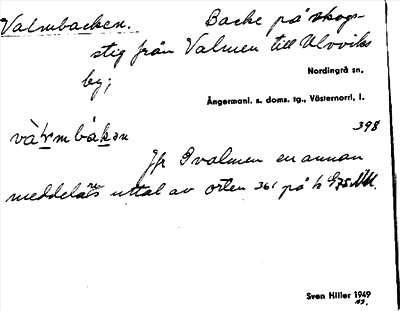 Valmbacken. Backe på skogs-
stig från Valmen till Ulvviks
by;
Nordingrå sn.
Ångermanl. s. doms. tg., Västernorrl. l.
398
Jfr Ivalmen en annan
meddelares uttal av orten 361 på
Sven Hiller 1949